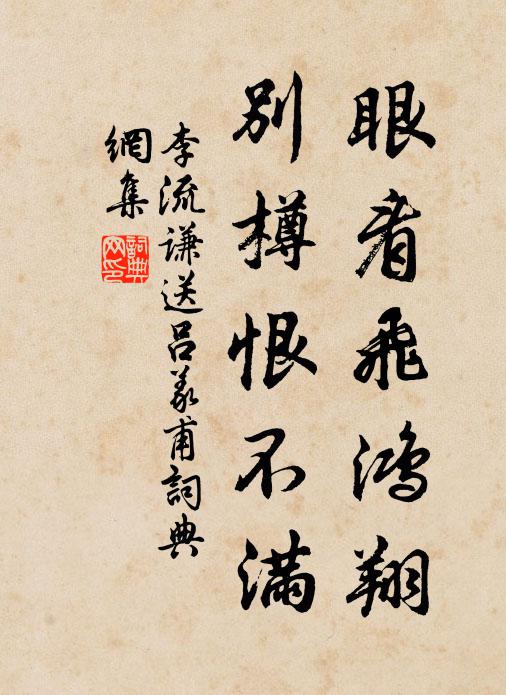 眼看飛鴻翔
別樽恨不滿
李流谦送吕义甫詞典
網集
詞典
网印